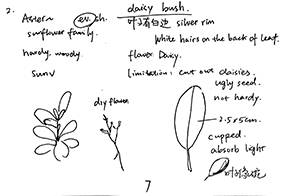 2.
daisy bush.
Aster~ ev. sh. 叶子有白边 silver rim
sunflower family.
White hairs on the back of leaf.
hardy, woody. flower Daisy.
sun√ limitation: cut out daisies.
ugly seed.
diy flower not hardy.
2.5x5cm.
cupped.
absorb light
7